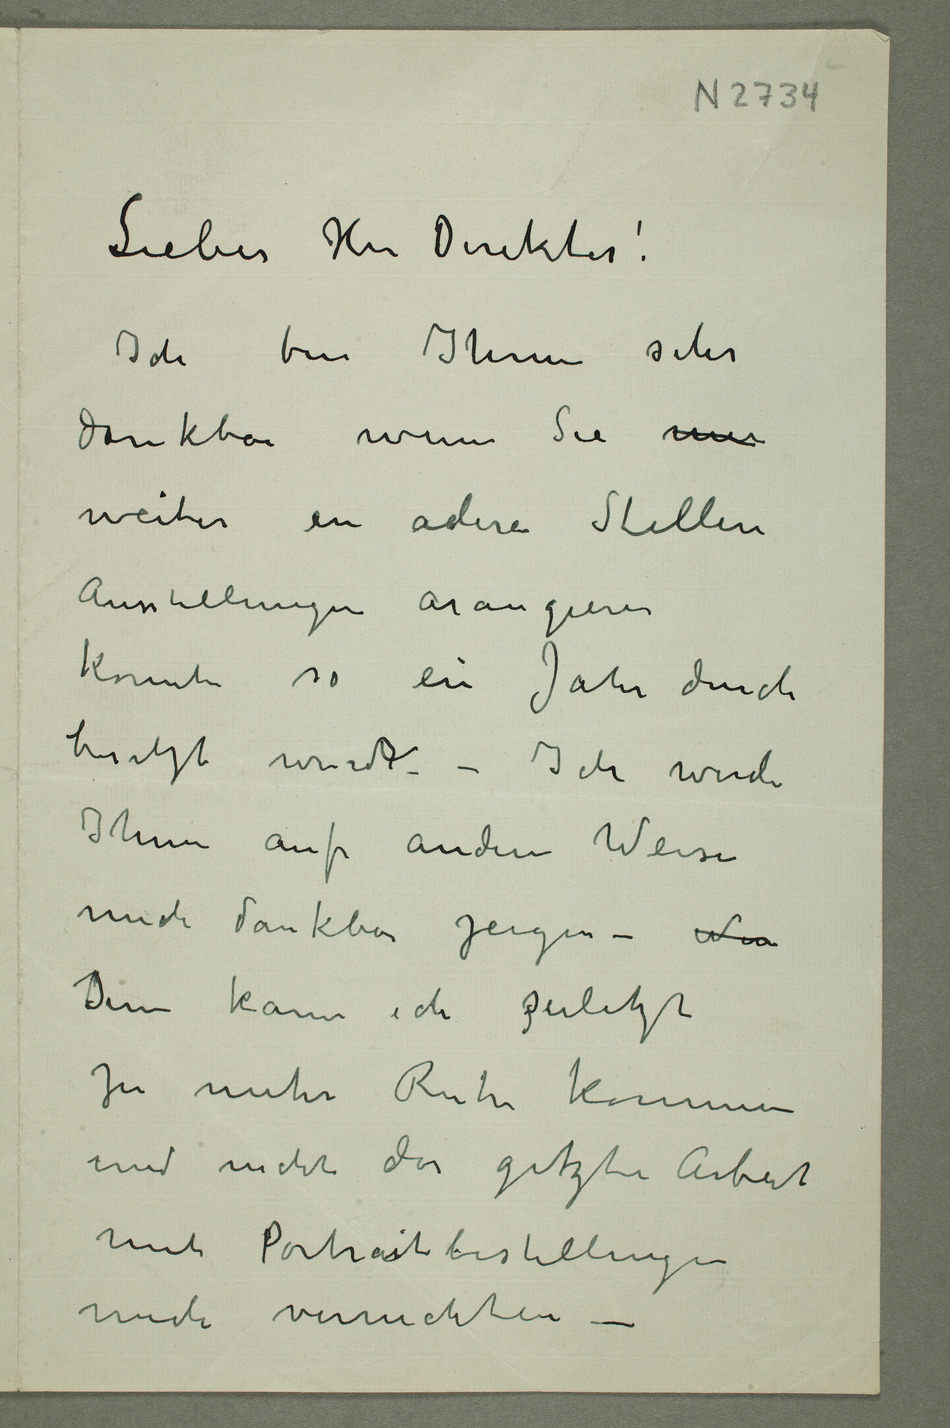 N 2734
Lieber Herr Direktor!
Ich bin Ihnen sehr
dankbar wenn Sie mir
weiter en adere Stellen
Ausstellungen arangieren
konnte so ein Jahr durch
besetzt wurde – Ich werde
Ihnen auf andere Weise
mich dankbar zeigen –
Den kann ich zuletzt
zu mehr Ruhe kommen
und nicht das getzte Arbeit
mit Portraitbestellungen
mich vernichten –